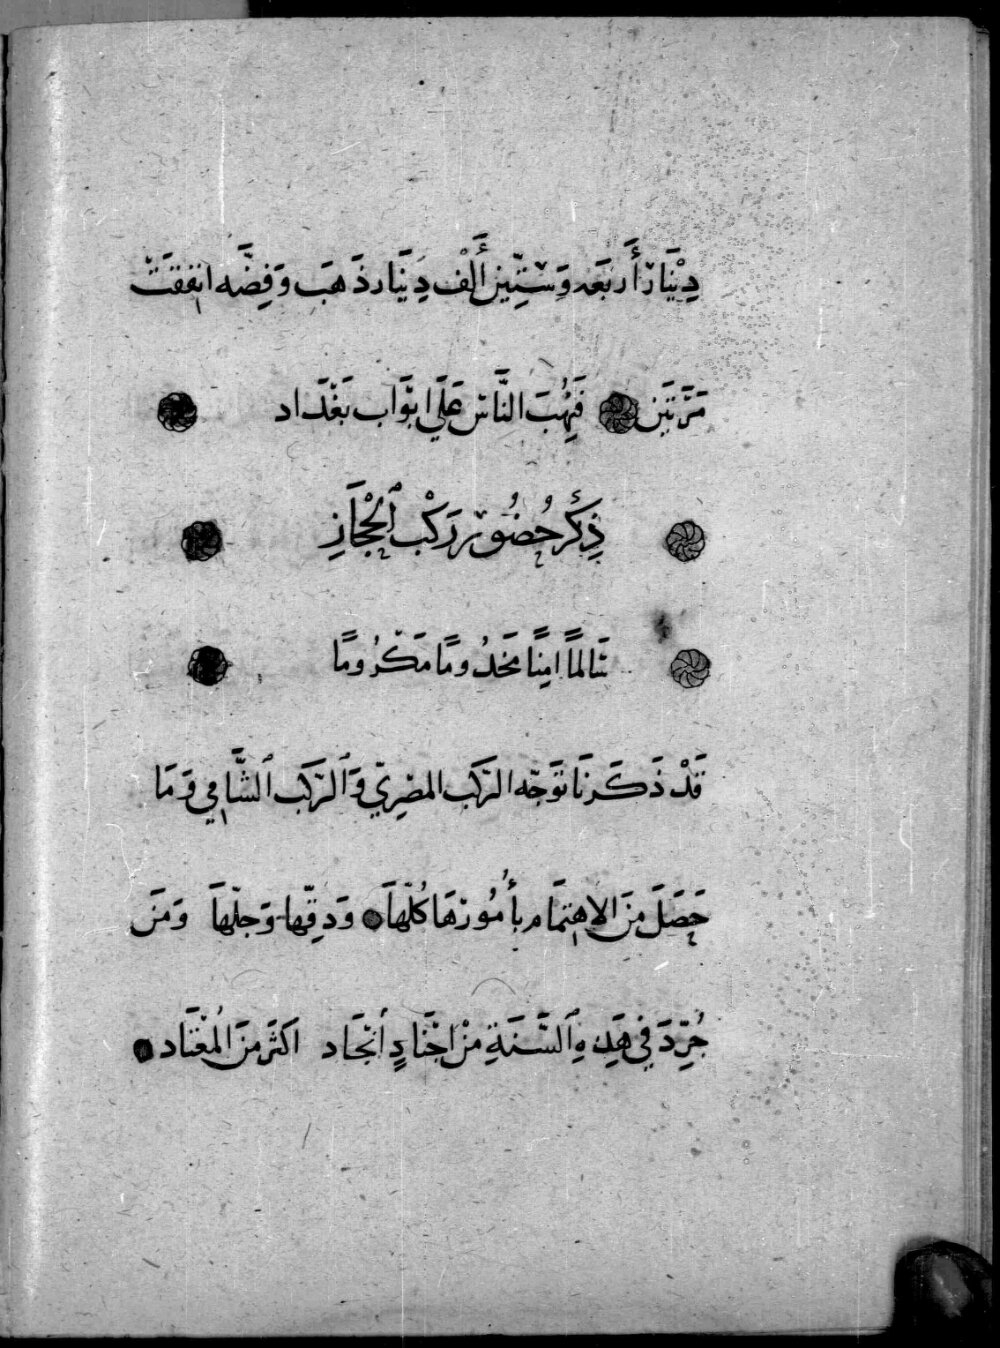 دِيْنَارْ أَربَعَه وَسِتِّين أَلْف دِينَار ذَهَب وَفِضَّه انفقَتْ
مَرَّتَين فَنُهِبَ النَّاسْ عَلَي ابوَّاب بَغْدَاد
ذِكْرُ حُضُورْ رَكْب ٱلْحِجَازِ
سَالماً امِنًا مَخدُومًا مَكْرُومًا
قَدْ ذَكَرنَا تَوَجّه الرّكَب المصْرِيّ وَٱلرّكَب ٱلشَّامِي وَمَا
حَصَلَ مِنَ الاهتِمَام بأُمُورْهَا كُلّهَا وَدِقّهَا وَجلّهَا وَمَنْ
جُرِّدَ فِي هَذِهِ ٱلسَّنَةِ مِنْ اجْنَادٍ أَنْجَاد اكثَر مِنَ المُعْتَاد